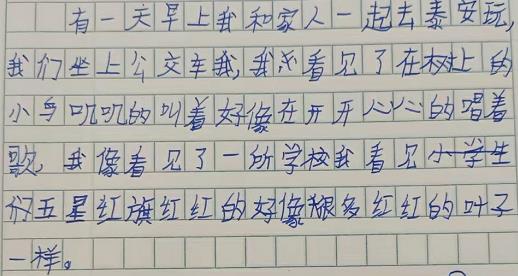 有一天早上我和家人一起去泰安玩,
我们坐上公交车我,我看见了在树上的
小鸟叽叽的叫着好像在开开心心的唱着
歌,我像看见了一所学校我看见小学生
们五星红旗红红的好像很多红红的叶子
一样。